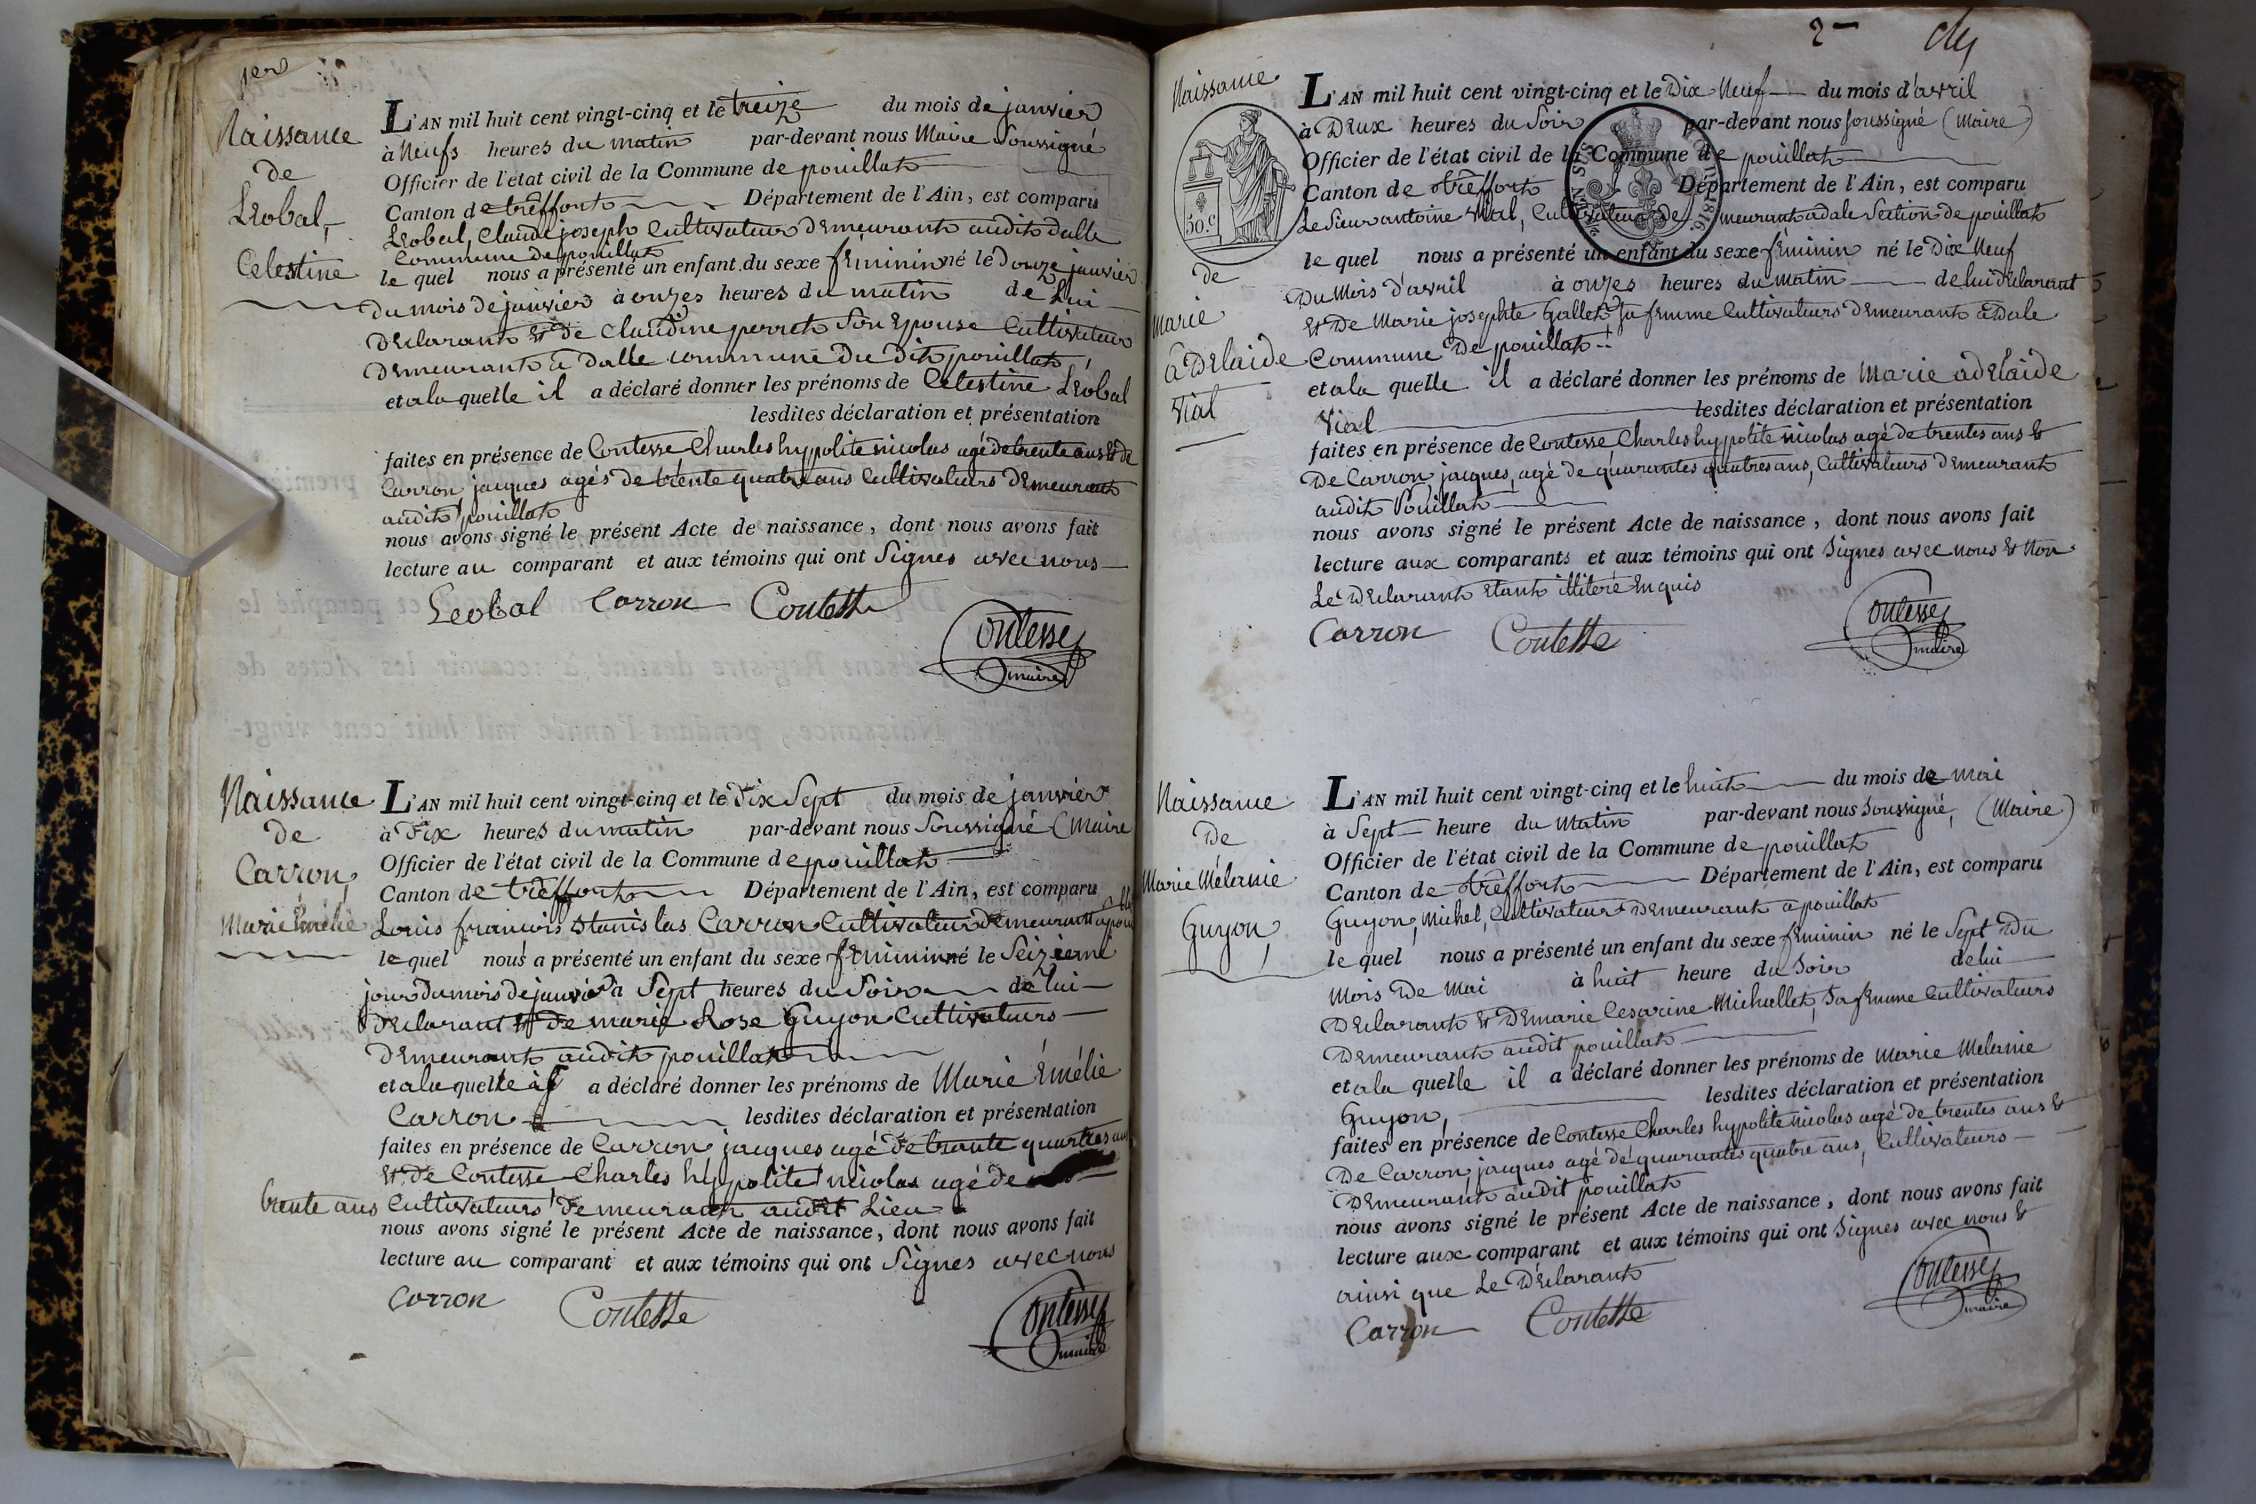 1er
Naissance
de
Léobal,
Celestine
L'AN mil huit cent vingt-cinq et le treize du mois de janvier
à Neufs heures du matin par-devant nous Maire Soussigné
Officier de l'état civil de la Commune de pouillat
Canton de trêffort Département de l'Ain, est comparu
Léobal, Claude joseph Cultivateur Demeurant audit dalle
Commune de pouillat
le quel nous a présenté un enfant du sexe féminin né le Douze janvier
du mois de janvier à onzes heures du matin de Lui
Déclarant et de Claudine perret Son Epouse Cultivateur
Demeurant à dalle commune du dit pouillat
et a la quelle il a déclaré donner les prénoms de Celestine Léobal
lesdites déclaration et présentation
faites en présence de Contesse Charles hypolite nicolas agé de trente ans et de
Carron jacques agés de trente quatre ans Cultivateurs Demeurant
audit pouillat
nous avons signé le présent Acte de naissance, dont nous avons fait
lecture au comparant et aux témoins qui ont Signes avec nous
Leobal Carron Contesse
Contesse
maire
Naissance
de
Carron,
Marie Émélie
L'AN mil huit cent vingt-cinq et le Dix Sept du mois de janvier
à Dix heures du matin par-devant nous Soussigné (Maire
Officier de l'état civil de la Commune de pouillat
Canton de trêffort Département de l'Ain, est comparu
Louis françois Stanislas Carron Cultivateur Demeurant a pouillat
le quel nous a présenté un enfant du sexe féminin né le Seizieme
jour du mois de janvier à Sept heures du Soir de lui
Déclarant et de marie Rose Guyon Cultivateurs
Demeurant audit pouillat
et a la quelle a déclaré donner les prénoms de Marie Émélie
Carron lesdites déclaration et présentation
faites en présence de Carron jacques agé de trante quattres ans
et de Contesse Charles hypolite nicolas agé de
trente ans Cultivateurs Demeurant audit Lieu
nous avons signé le présent Acte de naissance, dont nous avons fait
lecture au comparant et aux témoins qui ont Signes avec nous
Carron Contesse
Contesse
maire
2
Naissance
50 c.
de
Marie
adelaide
Vial
L'AN mil huit cent vingt-cinq et le Dix Neuf du mois d'avril
à Deux heures du Soir par-devant nous soussigné (Maire)
Officier de l'état civil de la Commune de pouillat
Canton de trêffort Département de l'Ain, est comparu
Le Sieur antoine Vial, Cultivateur Demeurant a dale Section de pouillat
le quel nous a présenté un enfant du sexe féminin né le Dix Neuf
Du Mois d'avril à onzes heures du matin de lui Déclarant
et De Marie josephte Gallet Sa femme Cultivateurs Demeurant à Dale
Commune de pouillat
et a la quelle il a déclaré donner les prénoms de Marie adelaide
Vial lesdites déclaration et présentation
faites en présence de Contesse Charles hypolite nicolas agé de trentes ans et
De Carron, jacques, agé de quarantes quatres ans, Cultivateurs Demeurant
audit Pouillat
nous avons signé le présent Acte de naissance, dont nous avons fait
lecture aux comparants et aux témoins qui ont Signes avec nous et Non
Le Déclarant Etant illiteré Enquis
Carron Contesse
Contesse
maire
Naissance
De
Marie Mélanie
Guyon,
L'AN mil huit cent vingt-cinq et le huit du mois de Mai
à Sept heure du Matin par-devant nous Soussigné, (Maire)
Officier de l'état civil de la Commune de pouillat
Canton de trêffort Département de l'Ain, est comparu
Guyon, Michel, Cultivateur Demeurant à pouillat
le quel nous a présenté un enfant du sexe féminin né le Sept Du
Mois De Mai à huit heure du Soir de lui
Déclarant et De marie Cesarine Michallet, Sa femme Cultivateurs
Demeurant audit pouillat
et a la quelle il a déclaré donner les prénoms de Marie Melanie
Guyon, lesdites déclaration et présentation
faites en présence de Contesse Charles hypolite nicolas agé de trentes ans et
De Carron, jacques agé de quarantes quatre ans, Cultivateurs
Demeurant audit pouillat
nous avons signé le présent Acte de naissance, dont nous avons fait
lecture aux comparant et aux témoins qui ont Signes avec nous et
ainsi que Le Déclarant
Carron Contesse
Contesse
maire